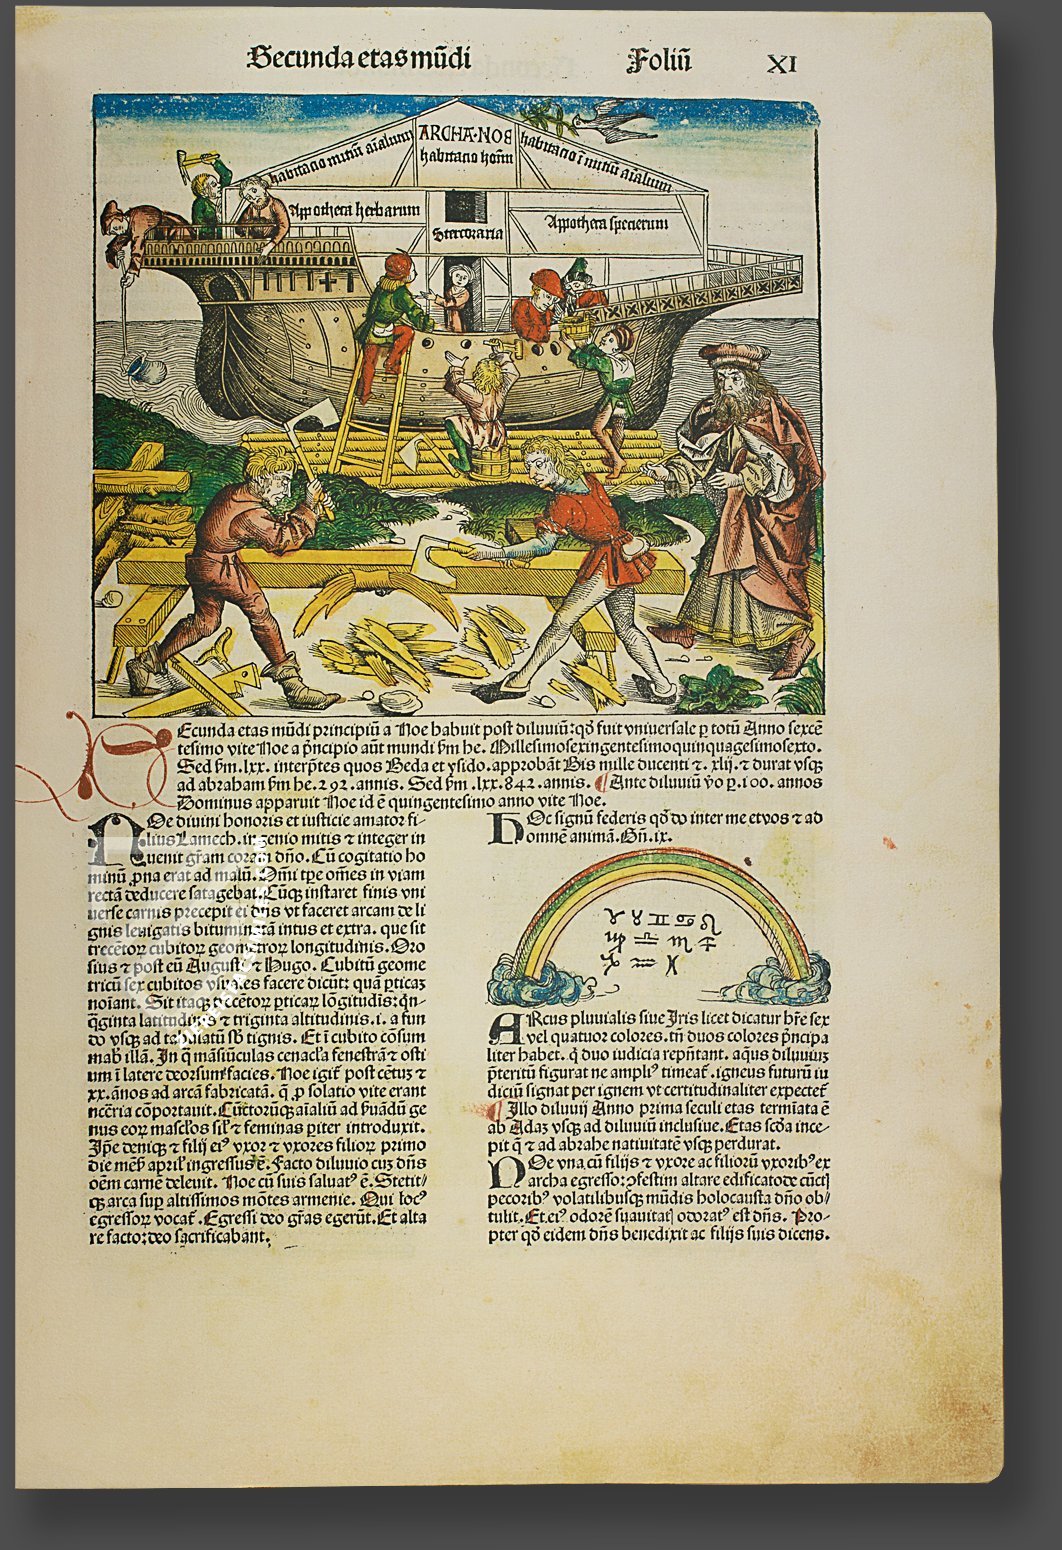 Secunda etas mūdi Foliū XI
ARCHA·NOE
habitacio mitiū aīalium
habitatio hoīm
habitacio īmitiū aīalium
Appotheca herbarum
Stercoraria
Appotheca specierum
Ecunda etas mūdi principiū a Noe habuit post diluuiū: qđ fuit vniuersale ꝑ totū Anno sexcē
tesimo vite Noe a p̄ncipio aūt mundi fm he. Millesimosexingentesimoquinquagesimosexto.
Sed fm .lxx. interp̄tes quos Beda et ysido. approbāt Bis mille ducenti ⁊. xlij. ⁊ durat vsqꝫ
ad abraham fm he. 292. annis. Sed fm .lxx. 842. annis. ¶ Ante diluuiū v̄o ꝑ. 100. annos
Dominus apparuit Noe id ē quingentesimo anno vite Noe.
NOe diuini honoris et iusticie amator fi-
lius Lamech. ingenio mitis ⁊ integer in
uenit gr̄am coram dn̄o. Cū cogitatio ho
minū ꝓna erat ad malū. Om̄i tꝑe om̄es in viam
rectā deducere satagebat. Cūqꝫ instaret finis vni
uerse carnis precepit ei dn̄s vt faceret arcam de li
gnis leuigatis bituminatā intus et extra. que sit
trecētoꝝ cubitoꝝ geometroꝝ longitudinis. Oro
sius ⁊ post eū Augustꝰ ⁊ Hugo. Cubitū geome
tricū sex cubitos vsuales facere dicūt: quā ꝑticaꝫ
noīant. Sit itaqꝫ trecētoꝝ ꝑticaꝝ lōgitudīs: qn̄-
q̄ginta latitudinis ⁊ triginta altitudinis. i. a fun
do vsqꝫ ad tabulatū sb tignis. Et ī cubito cōsum
mab illā. In q̄ māsiūculas cenacl'a fenestrā ⁊ osti
um ī latere deorsum facies. Noe igit̄ post cētuꝫ ⁊
xx. ānos ad arcā fabricatā. q̄ ꝓ solatio vite erant
ncēria cōportauit. Cūctorūqꝫ aīaliū ad s̄uādū ge
nus eoꝝ mascl'os sil' ⁊ feminas ꝑiter introduxit.
Ip̄e deniqꝫ ⁊ filij eiꝰ vxor ⁊ vxores filioꝝ primo
die mēs april' ingressus ē. Facto diluuio cuꝫ dn̄s
oēm carnē deleuit. Noe cū suis saluatꝰ ē. Stetit-
qꝫ arca suꝑ altissimos mōtes armenie. Qui locꝰ
egressoꝝ vocat̄. Egressi deo gr̄as egerūt. Et alta
re facto: deo sacrificabant.
HOc signū federis qđ do inter me et vos ⁊ ad
omnē animā. Gn̄. ix.
♈ ♉ ♊ ♋ ♌
♍ ♎ ♏ ♐
♑ ♒ ♓
ARcus pluuialis siue Iris licet dicatur hr̄e sex
vel quatuor colores. tn̄ duos colores p̄ncipa
liter habet. q̄ duo iudicia rep̄ntant. aq̄us diluuiuꝫ
p̄teritū figurat ne ampliꝰ timeat̄. igneus futurū iu
diciū signat per ignem vt certitudinaliter expectet̄
¶ Illo diluuij Anno prima seculi etas termīata ē
ab Adaꝫ vsqꝫ ad diluuiū inclusiue. Etas scđa ince-
pit q̄ ⁊ ad abrahe natiuitatē vsqꝫ perdurat.
NOe vna cū filijs ⁊ vxore ac filiorū vxoribꝰ ex
archa egresso: ꝓfestim altare edificato de cūctꝭ
pecoribꝰ volatilibusqꝫ mūdis holocausta dn̄o ob-
tulit. Et eiꝰ odorē suauitatꝭ odoratꝰ est dn̄s. Pro-
pter qđ eidem dn̄s benedixit ac filijs suis dicens.